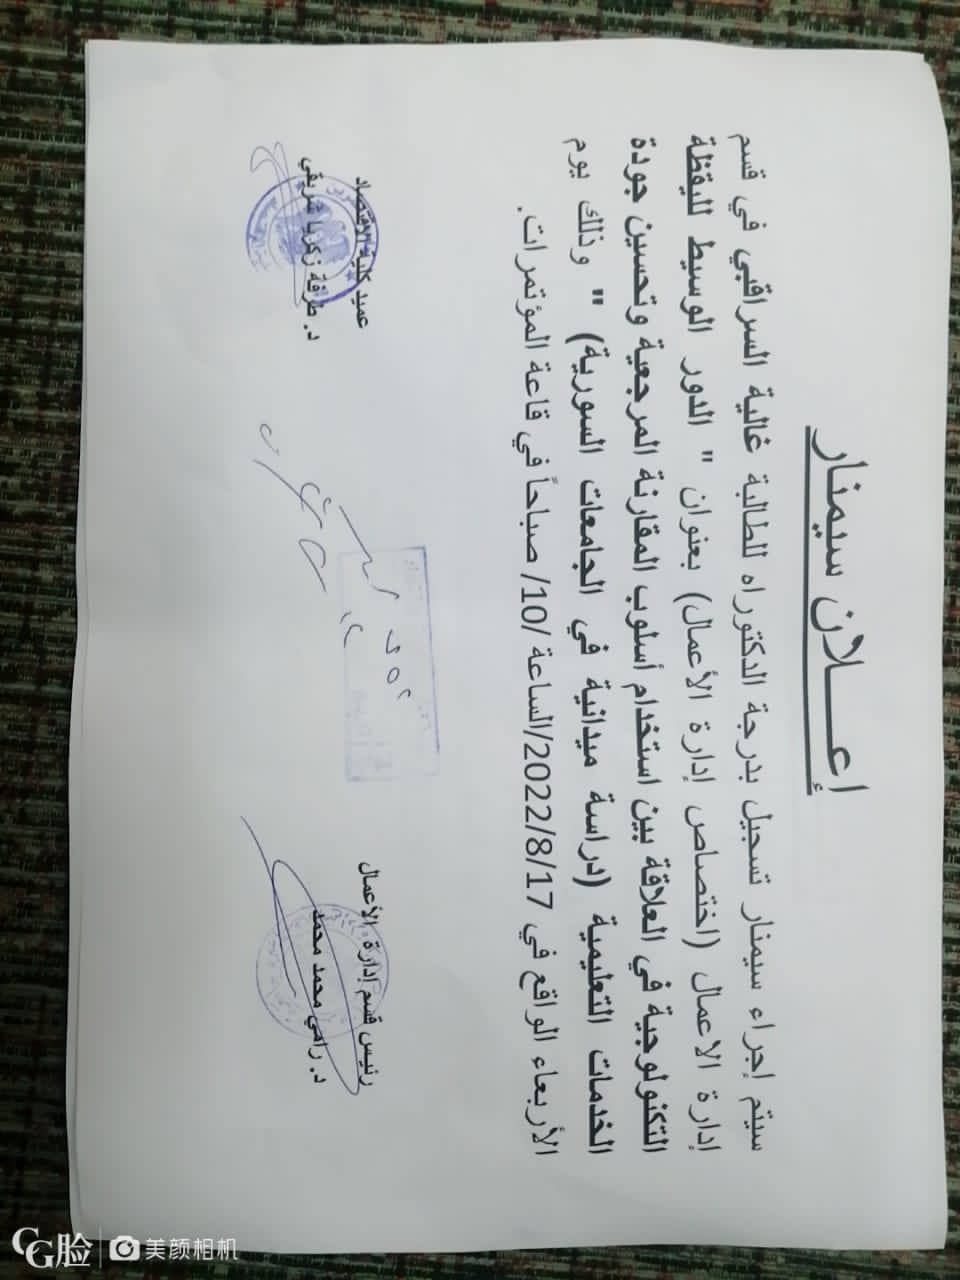 إعـــلان سيمنار
سيتم إجراء سيمنار تسجيل بدرجة الدكتوراه للطالبة غالية السراقبي في قسم
إدارة الاعمال (اختصاص إدارة الأعمال) بعنوان " الدور الوسيط لليقظة
التكنولوجية في العلاقة بين استخدام أسلوب المقارنة المرجعية وتحسين جودة
الخدمات التعليمية (دراسة ميدانية في الجامعات السورية) " وذلك يوم
الأربعاء الواقع في 2022/8/17/الساعة /10/ صباحاً في قاعة المؤتمرات.
رئيس قسم إدارة الأعمال
د. رامي محمد محمد
عميد كلية الاقتصاد
د. طرفة زكريا شريقي
CG脸 美颜相机